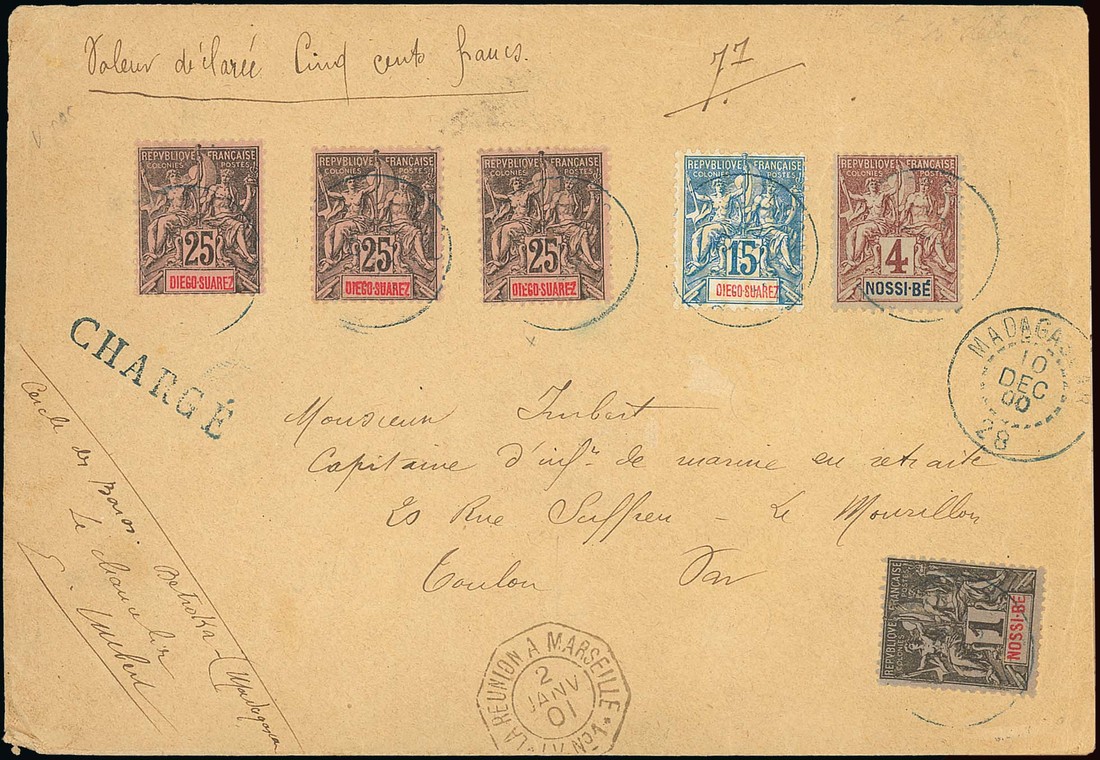 Valeur déclarée Cinq cents francs.
77
REPVBLIQUE FRANÇAISE
COLONIES POSTES
25
DIEGO-SUAREZ
REPVBLIQUE FRANÇAISE
COLONIES POSTES
25
DIEGO-SUAREZ
REPVBLIQUE FRANÇAISE
COLONIES POSTES
25
DIEGO-SUAREZ
REPVBLIQUE FRANÇAISE
COLONIES POSTES
15
DIEGO-SUAREZ
REPVBLIQUE FRANÇAISE
COLONIES POSTES
4
NOSSI-BÉ
CHARGÉ
MADAGASCAR
10
DEC
00
28
Monsieur Imbert
Capitaine d'infie de marine en retraite
20 Rue Suffren - Le Mourillon
Toulon Var
Cercle des Baras. Betroka (Madagascar
Le chancelier
E. Imbert
REPVBLIQUE FRANÇAISE
COLONIES POSTES
1
NOSSI-BÉ
LA REUNION A MARSEILLE
2
JANV
01